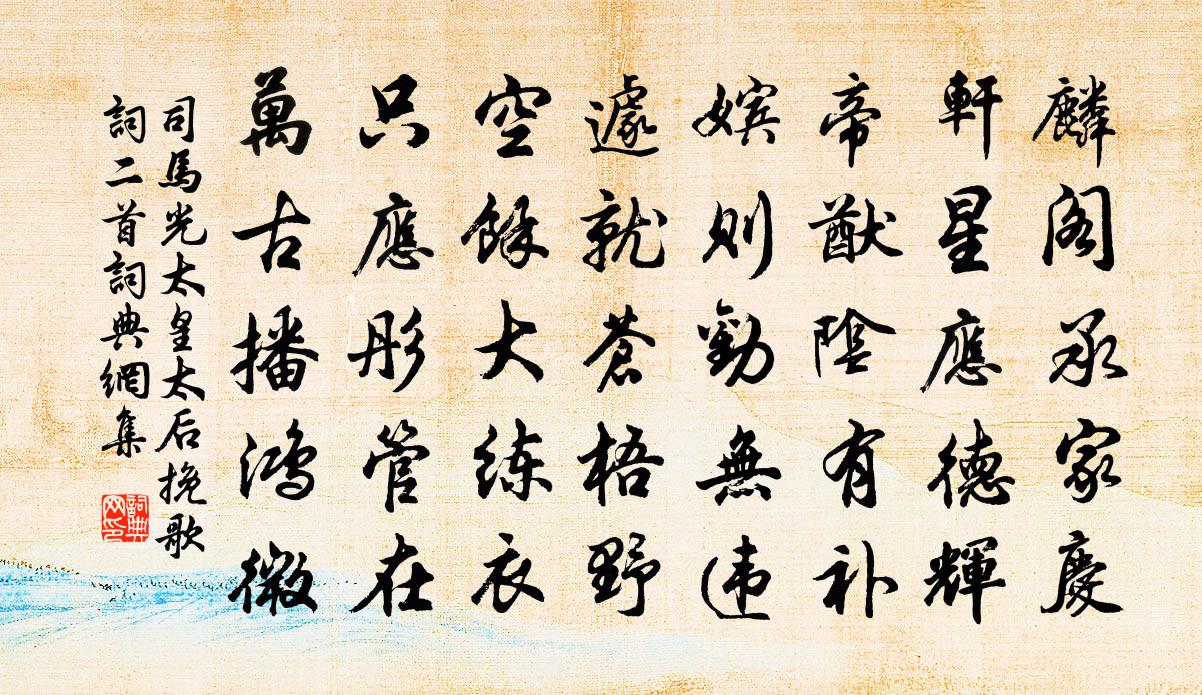 麟阁承家慶
軒星應德輝
帝猷陰有补
嫔则勤無违
遽就蒼梧野
空餘大练衣
只應彤管在
萬古播鸿徽
司馬光太皇太后挽歌
詞二首詞典網集
詞典
网印